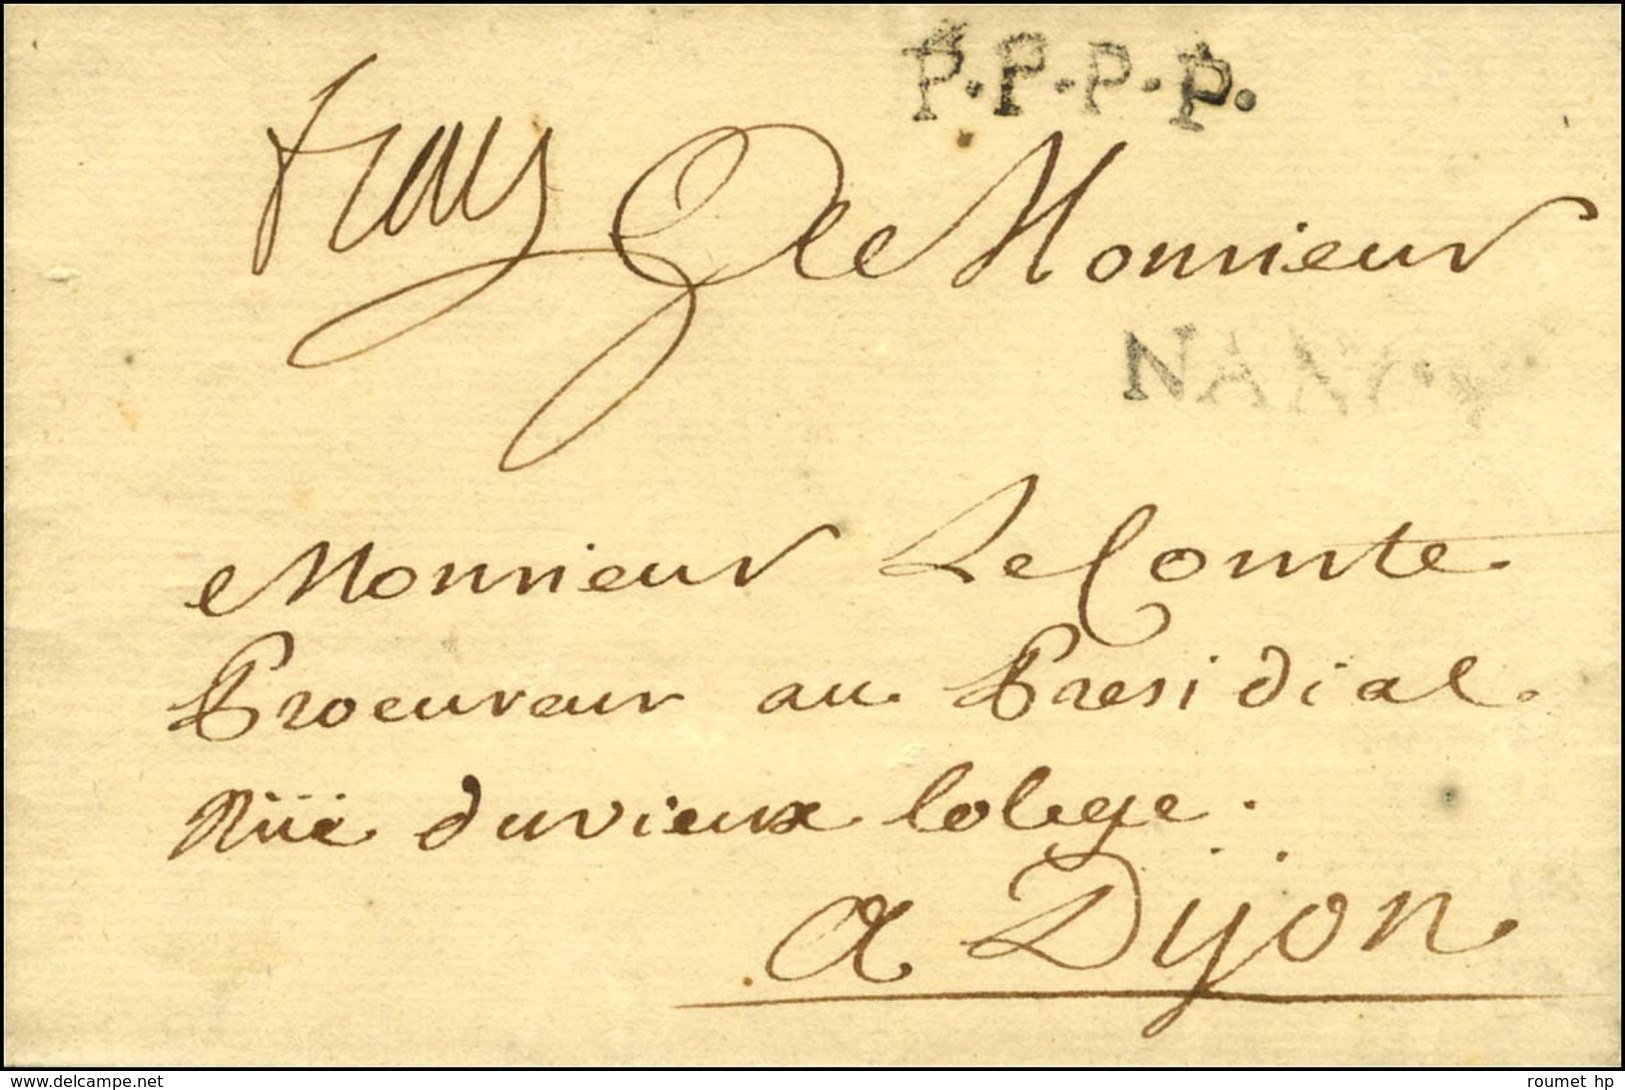 P.P.P.P.
franc De Monsieur
NANCY
Monsieur Le Comte
Procureur au Presidial
Rüe du vieux Colege.
a Dijon
www.delcampe.net
roumet hp